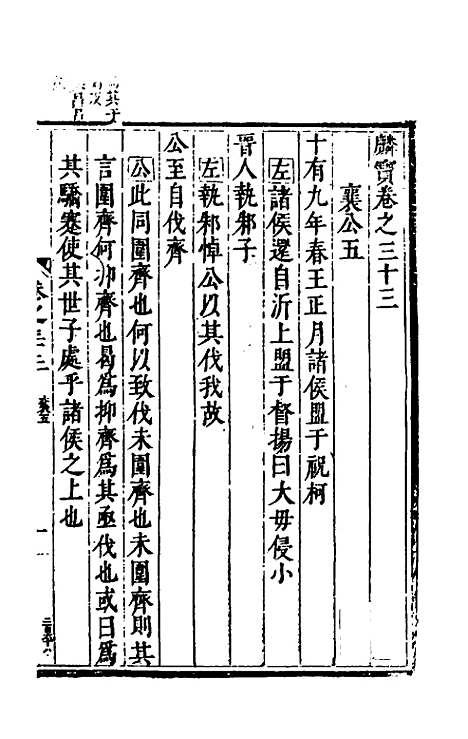 麟寶卷之三十三
襄公五
十有九年春王正月諸侯盟于祝柯
左諸侯還自沂上盟于督揚曰大毋侵小
晉人執邾子
左執邾悼公以其伐我故
公至自伐齊
公此同圍齊也何以致伐未圍齊也未圍齊則其
言圍齊何抑齊也曷為抑齊為其亟伐也或曰為
其驕蹇使其世子處乎諸侯之上也